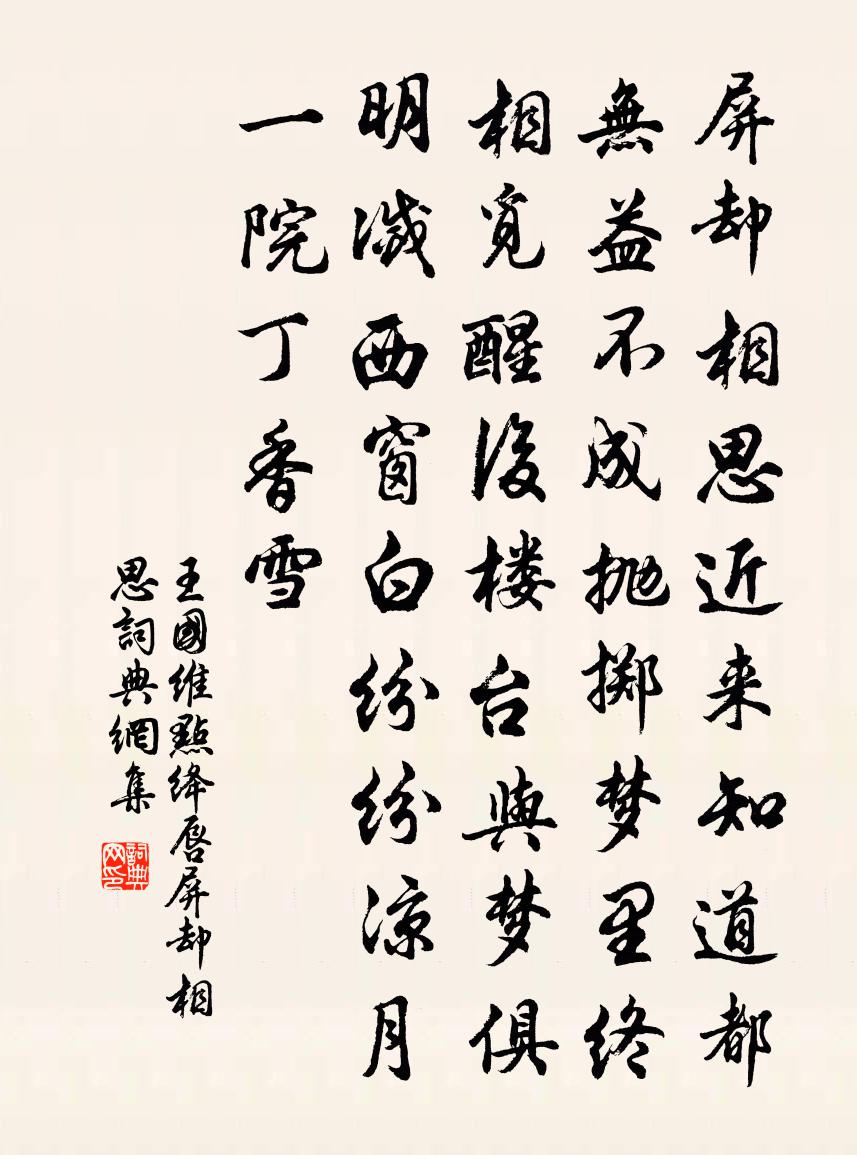 屏却相思近来知道都
無益不成抛掷梦里终
相觅醒後楼台與梦俱
明滅西窗白纷纷涼月
一院丁香雪
王國维點绛唇屏却相
思詞典網集
詞典网印